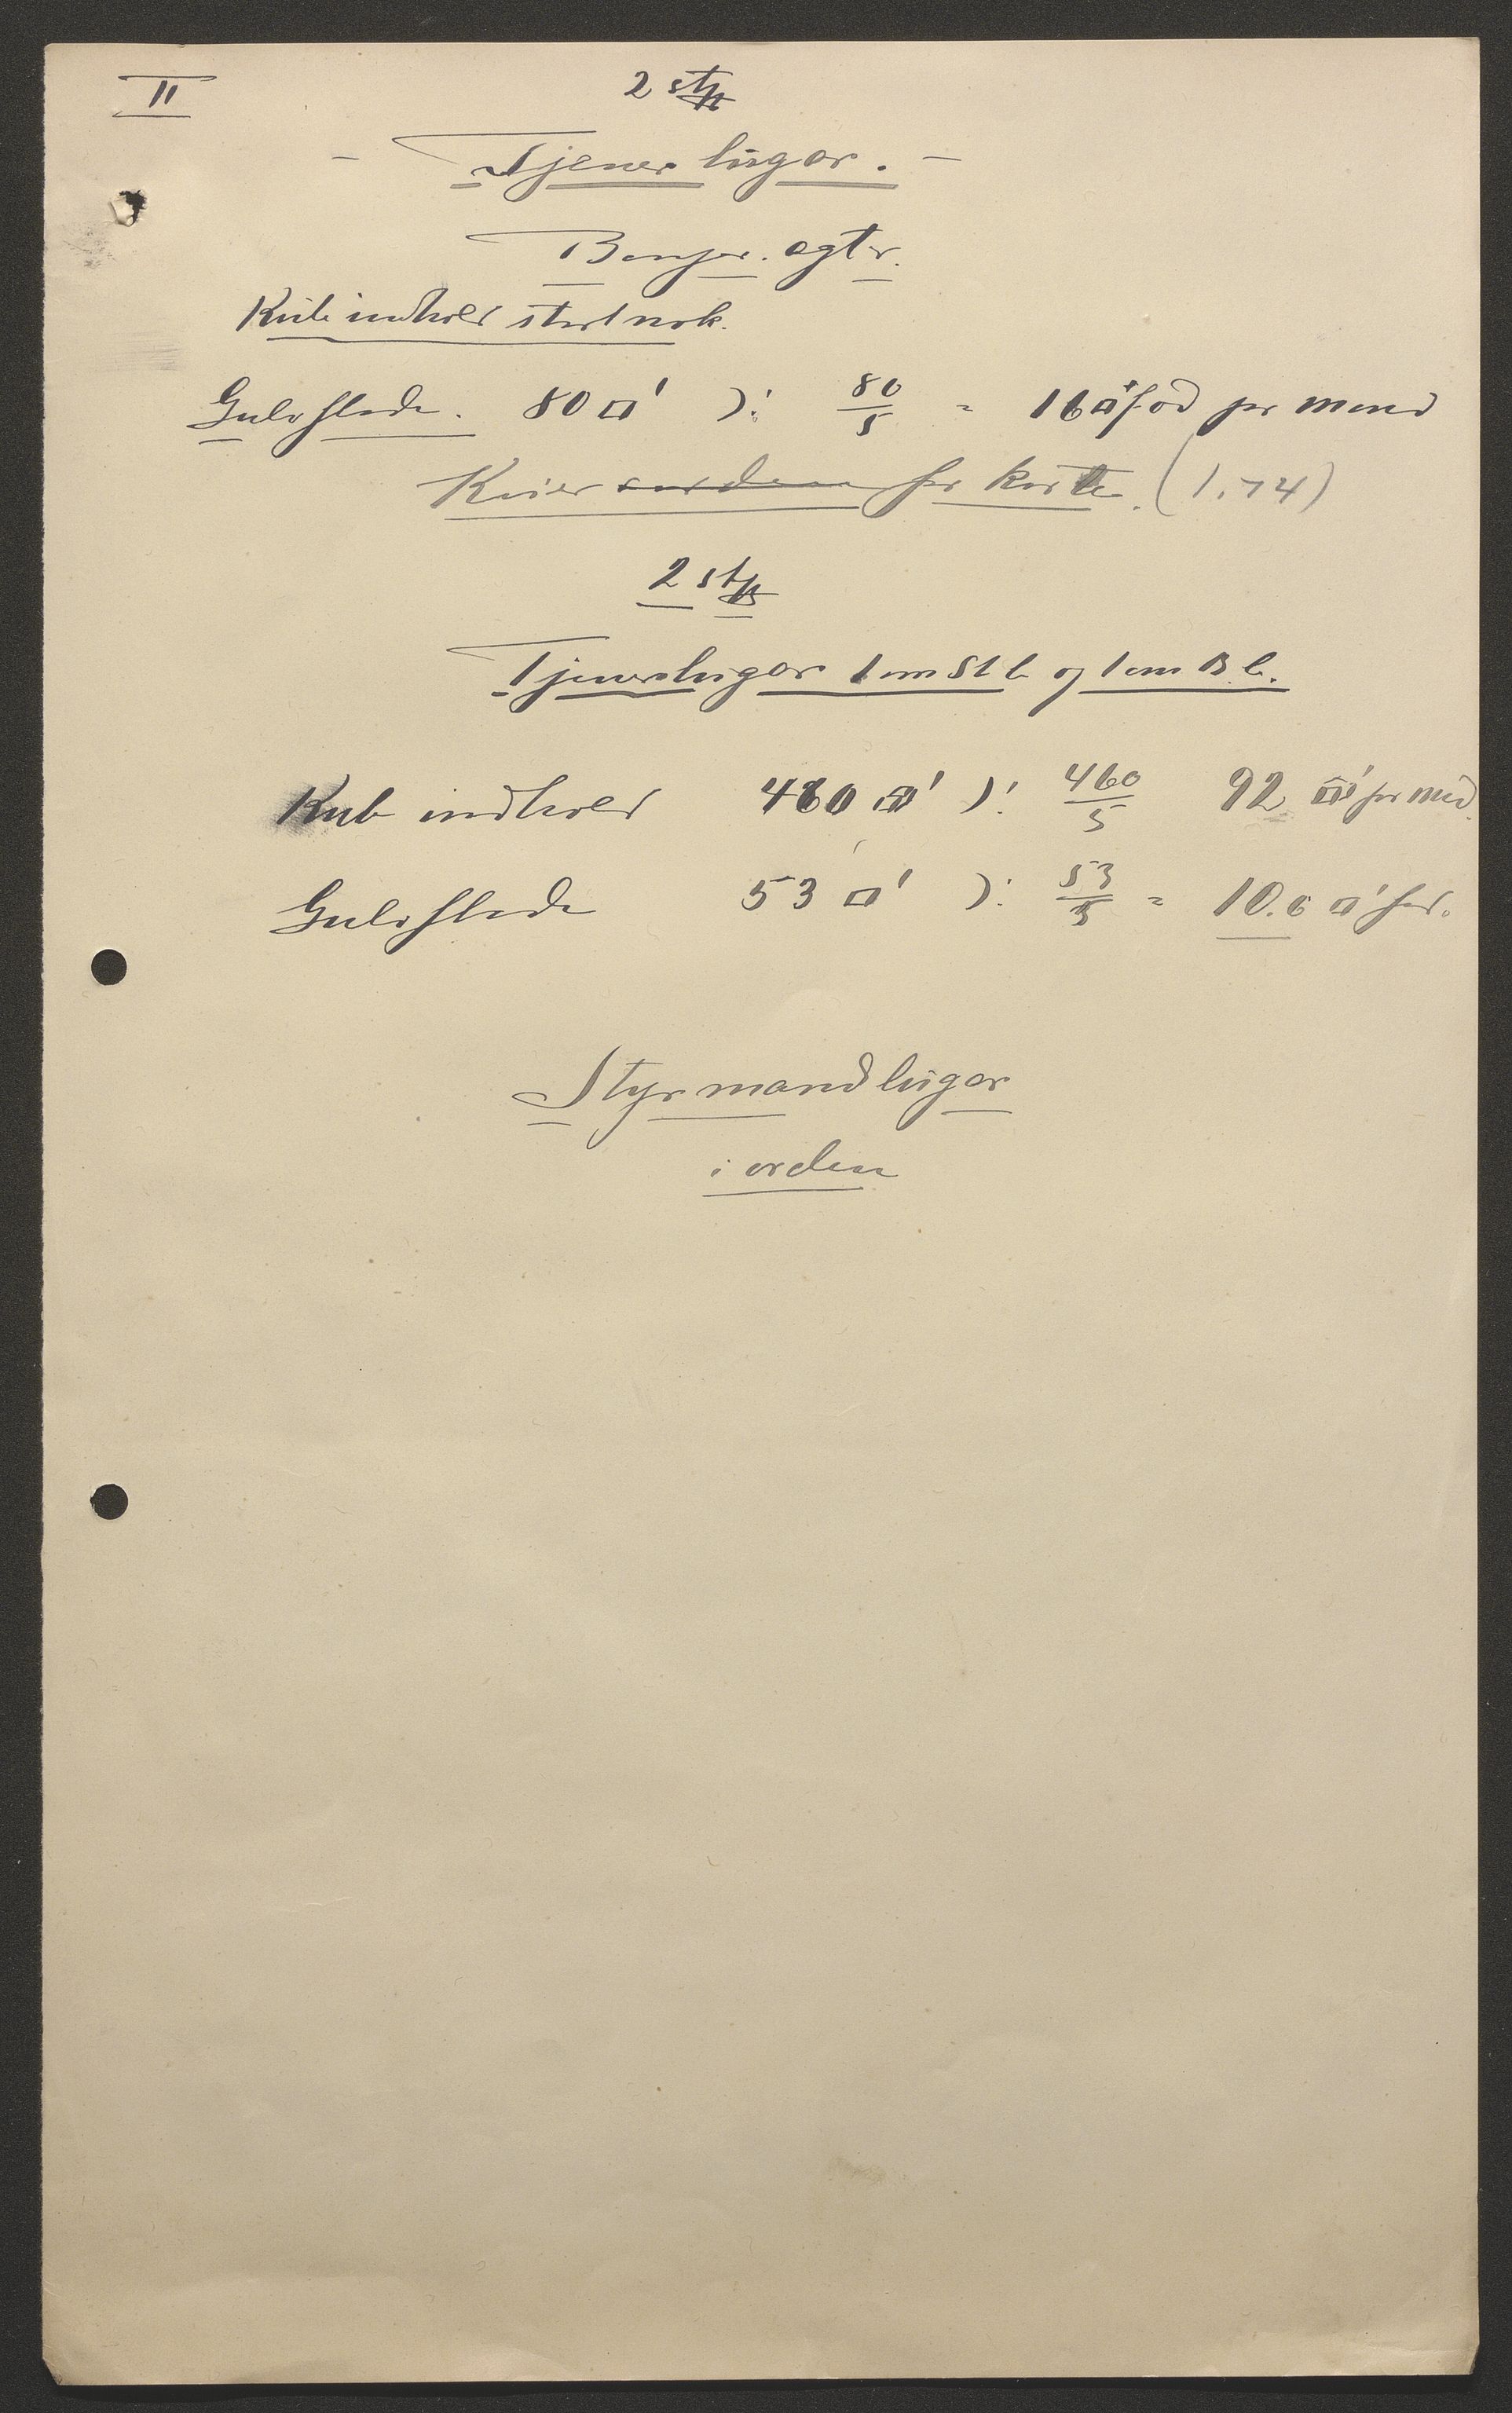 II
2 stk
- Tjener lugar. -
Kub indhold stort nok.
Gulvflade. 80 □' ɔ: 80/5 = 16 □'fod pr mand
Køier for korte. (1.74)
2 stk
Tjenerlugar 1 om St b og 1 om B. b.
Kub indhold 460 ɔ: 460/5 92 pr md.
Gulvflade 53 □' ɔ: 53/5 = 10.6 □'
Styrmandlugar
i orden